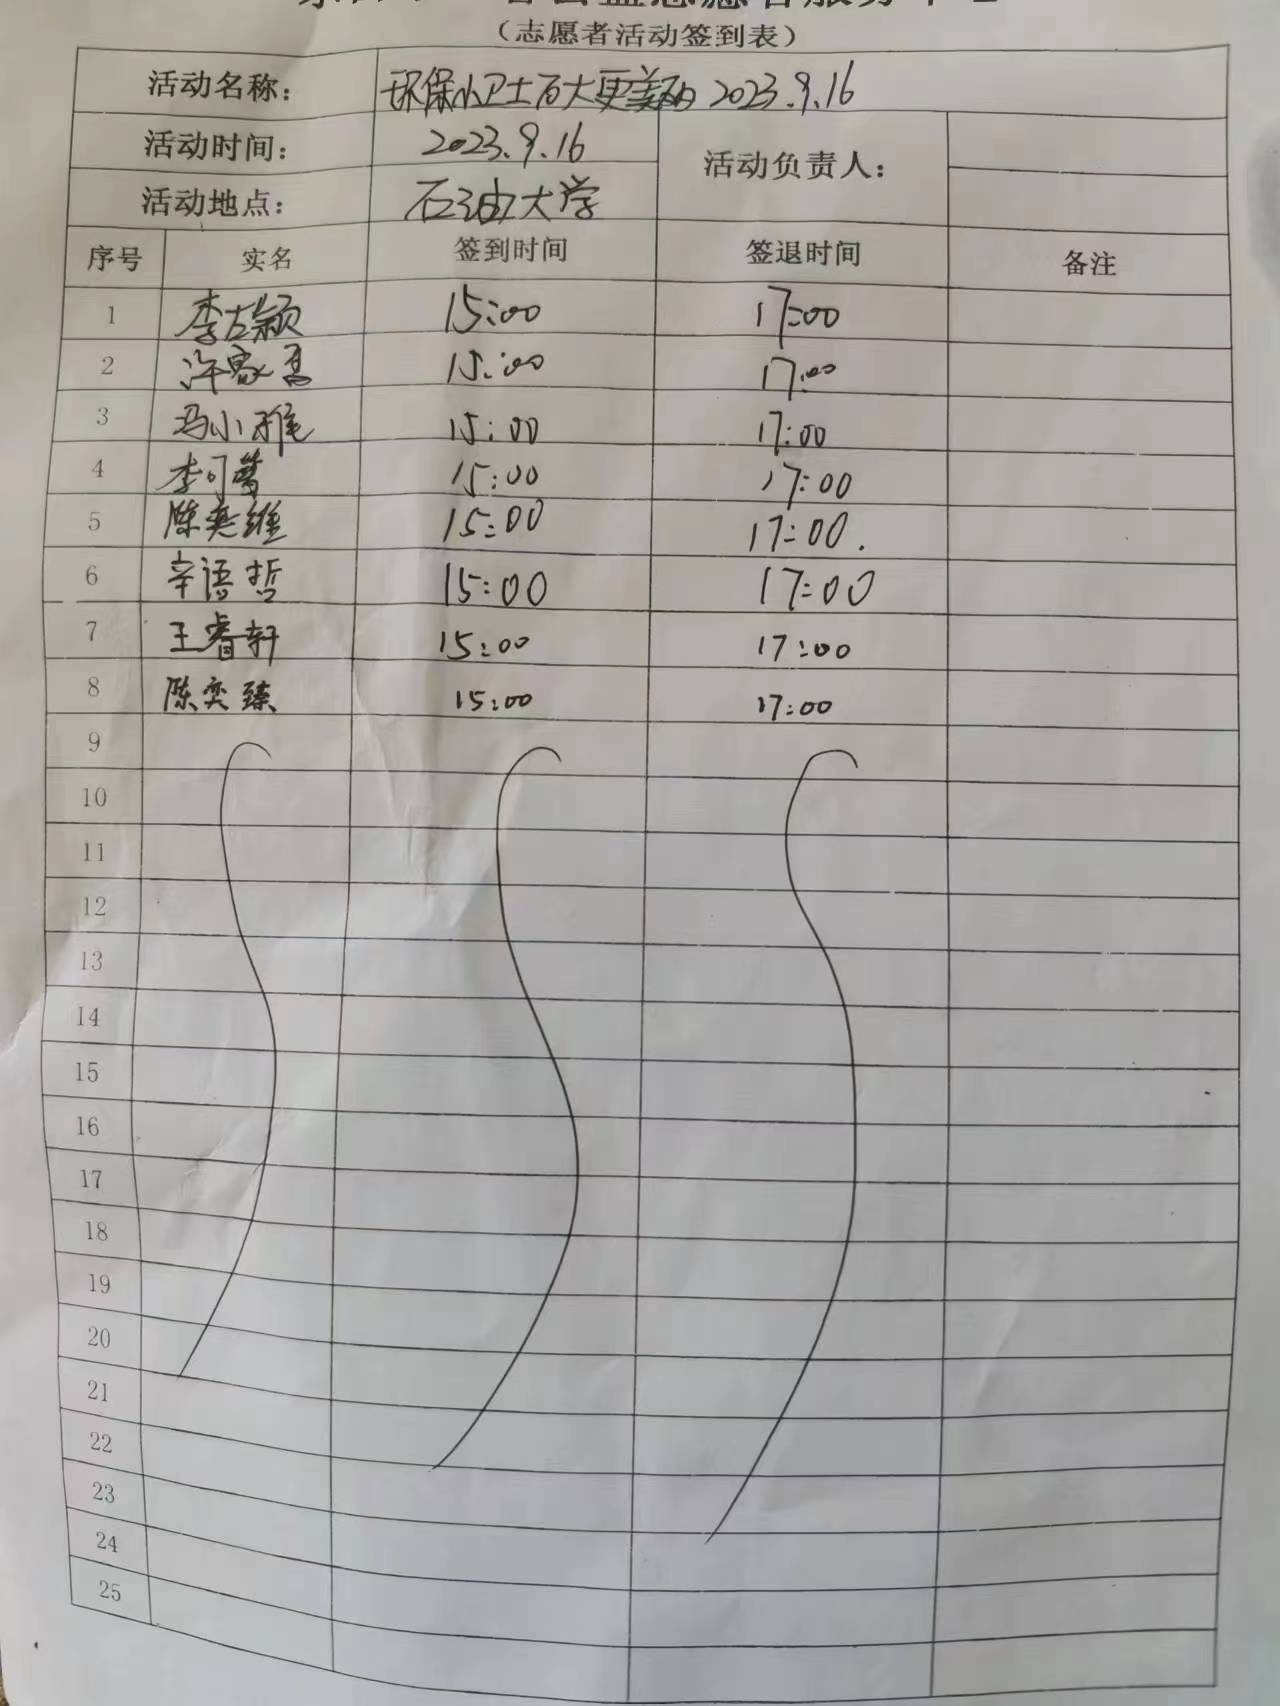 （志愿者活动签到表）
活动名称： 环保小卫士石大更美丽 2023.9.16
活动时间： 2023.9.16 活动负责人：
活动地点： 石油大学
序号 实名 签到时间 签退时间 备注
1 李颖 15:00 17:00
2 许家 15:00 17:00
3 冯小雅 15:00 17:00
4 李可 15:00 17:00
5 陈奕维 15:00 17:00.
6 辛语哲 15:00 17:00
7 王睿轩 15:00 17:00
8 陈奕臻 15:00 17:00
9
10
11
12
13
14
15
16
17
18
19
20
21
22
23
24
25